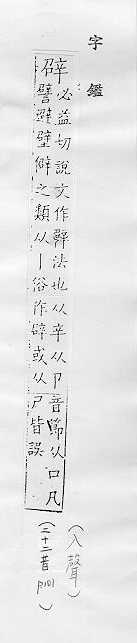 字鑑
辟
必益切說文作辟法也从辛从卩音節从口凡
譬避壁僻之類从丨俗作辟或从尸皆誤
(入聲)
(二十二昔 p101)